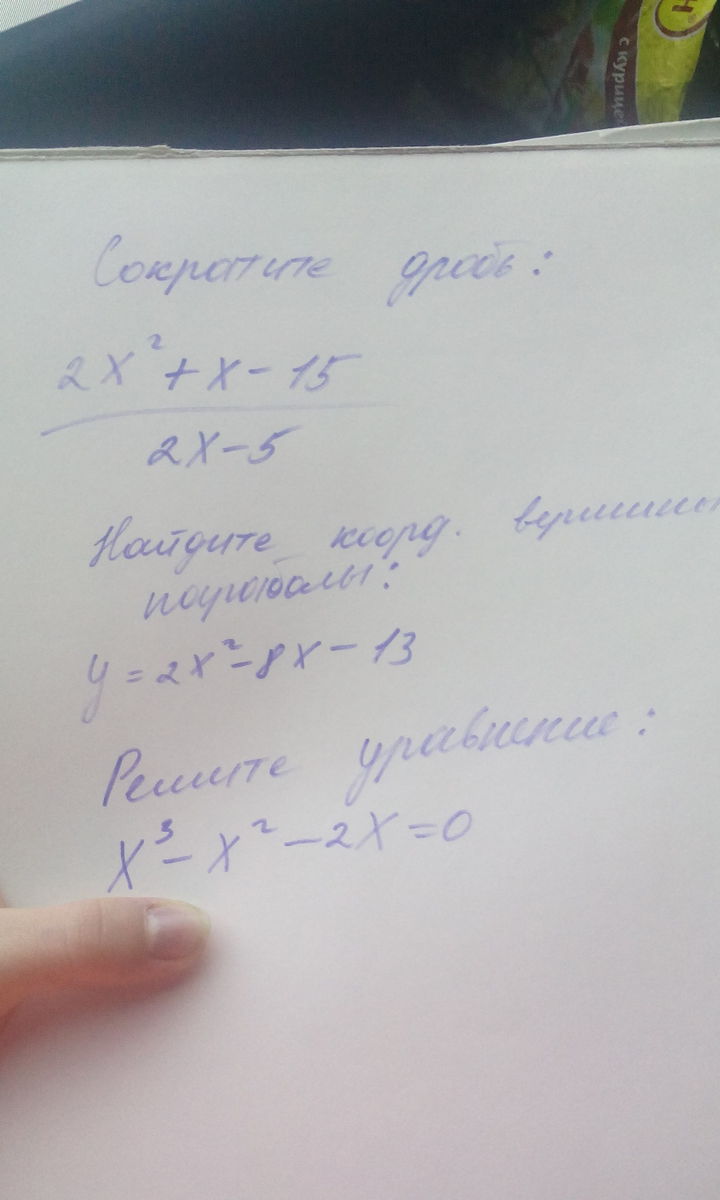 с курице
Сократите дробь:
2x² + x - 15
2x - 5
Найдите коорд. вершины
параболы:
y = 2x² - 8x - 13
Решите уравнение:
x³ - x² - 2x = 0